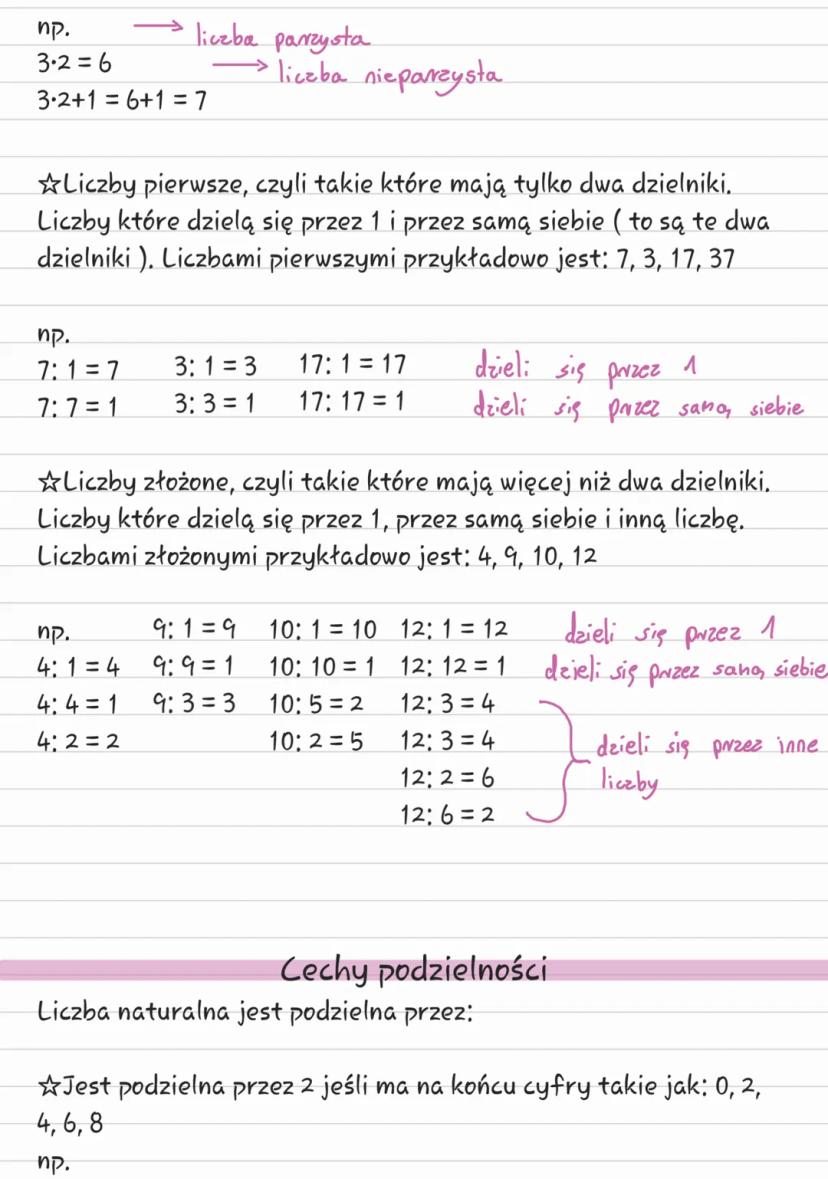 np. → liczba parzysta
3·2 = 6 → liczba nieparzysta
3·2+1 = 6+1 = 7
☆Liczby pierwsze, czyli takie które mają tylko dwa dzielniki.
Liczby które dzielą się przez 1 i przez samą siebie ( to są te dwa
dzielniki ). Liczbami pierwszymi przykładowo jest: 7, 3, 17, 37
np.
7: 1 = 7 3: 1 = 3 17: 1 = 17 dzieli się przez 1
7: 7 = 1 3: 3 = 1 17: 17 = 1 dzieli się przez samą siebie
☆Liczby złożone, czyli takie które mają więcej niż dwa dzielniki.
Liczby które dzielą się przez 1, przez samą siebie i inną liczbę.
Liczbami złożonymi przykładowo jest: 4, 9, 10, 12
np. 9: 1 = 9 10: 1 = 10 12: 1 = 12 dzieli się przez 1
4: 1 = 4 9: 9 = 1 10: 10 = 1 12: 12 = 1 dzieli się przez samą siebie
4: 4 = 1 9: 3 = 3 10: 5 = 2 12: 3 = 4
4: 2 = 2 10: 2 = 5 12: 3 = 4 dzieli się przez inne
12: 2 = 6 liczby
12: 6 = 2
Cechy podzielności
Liczba naturalna jest podzielna przez:
☆Jest podzielna przez 2 jeśli ma na końcu cyfry takie jak: 0, 2,
4, 6, 8
np.